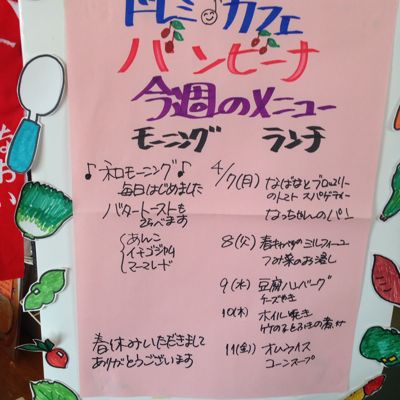 ドレミ♪カフェ
バンビーナ
今週のメニュー
モーニング ランチ
♪和モーニング♪
毎日はじめました
バタートーストも
えらべます
あんこ
イチゴジャム
マーマレード
春休みいただきまして
ありがとうございます
4/7(月) なばなとブロッコリー
のトマトスパゲティー
なっちゃんのパン
8(火) 春キャベツのミルフィーユ
つみ菜のお浸し
9(水) 豆腐ハンバーグ
チーズやき
10(木) ホイル焼き
竹のことふきの煮付
11(金) オムライス
コーンスープ